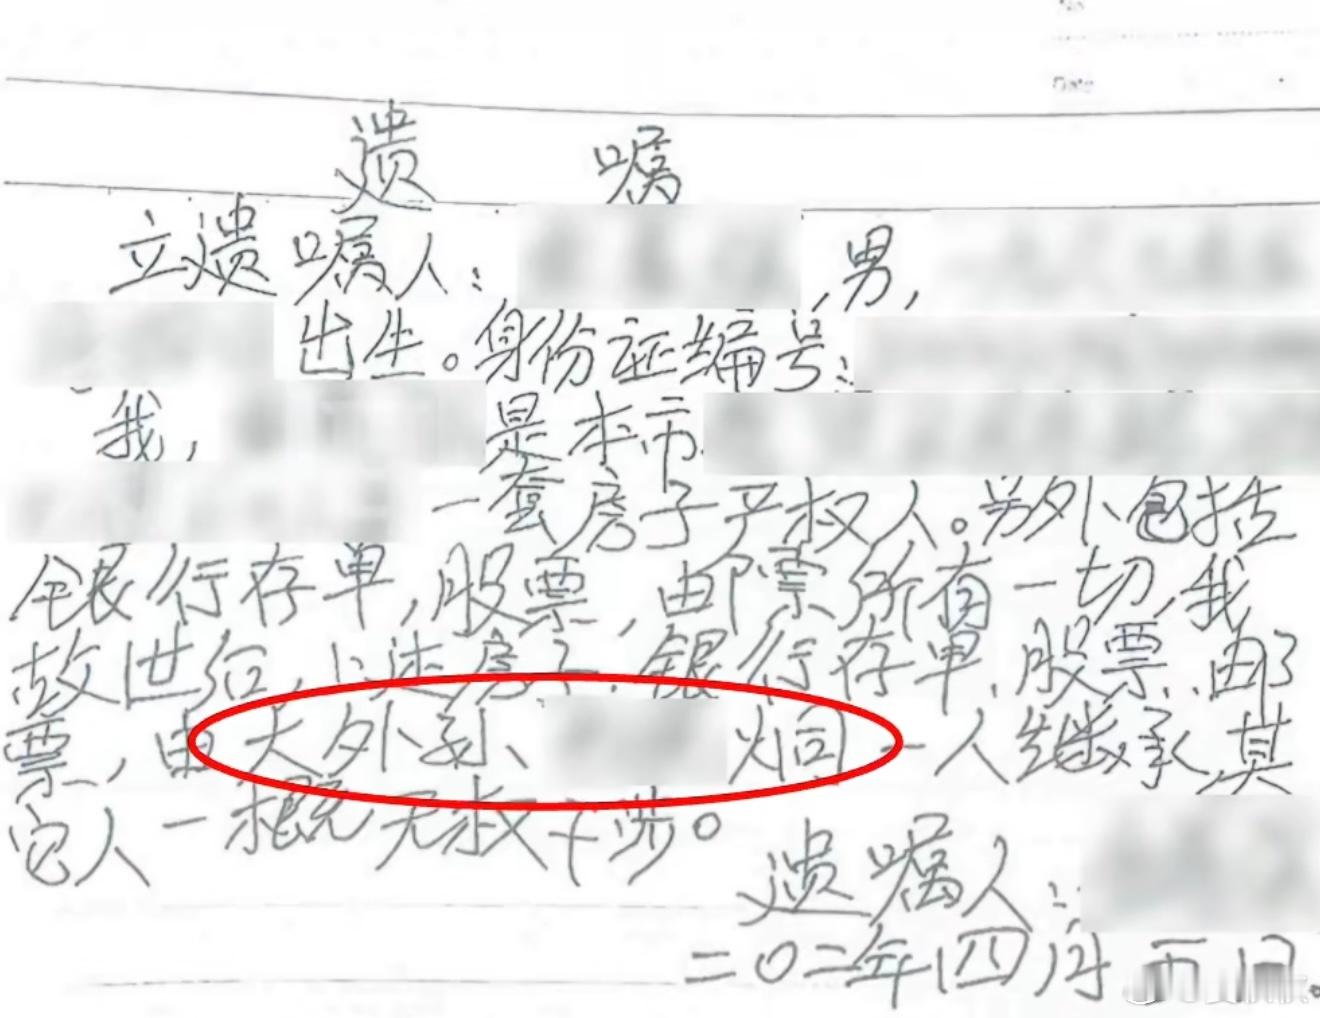 No
Date
遗 嘱
立遗嘱人: ,男,
出生。身份证编号:
我, 是本市
一套房子产权人。另外包括
银行存单,股票,邮票所有一切,我
故世后,上述房子,银行存单,股票,邮
票,由大外孙、 炯 一人继承,其
它人一概无权干涉。
遗嘱人:
二〇二年四月五日